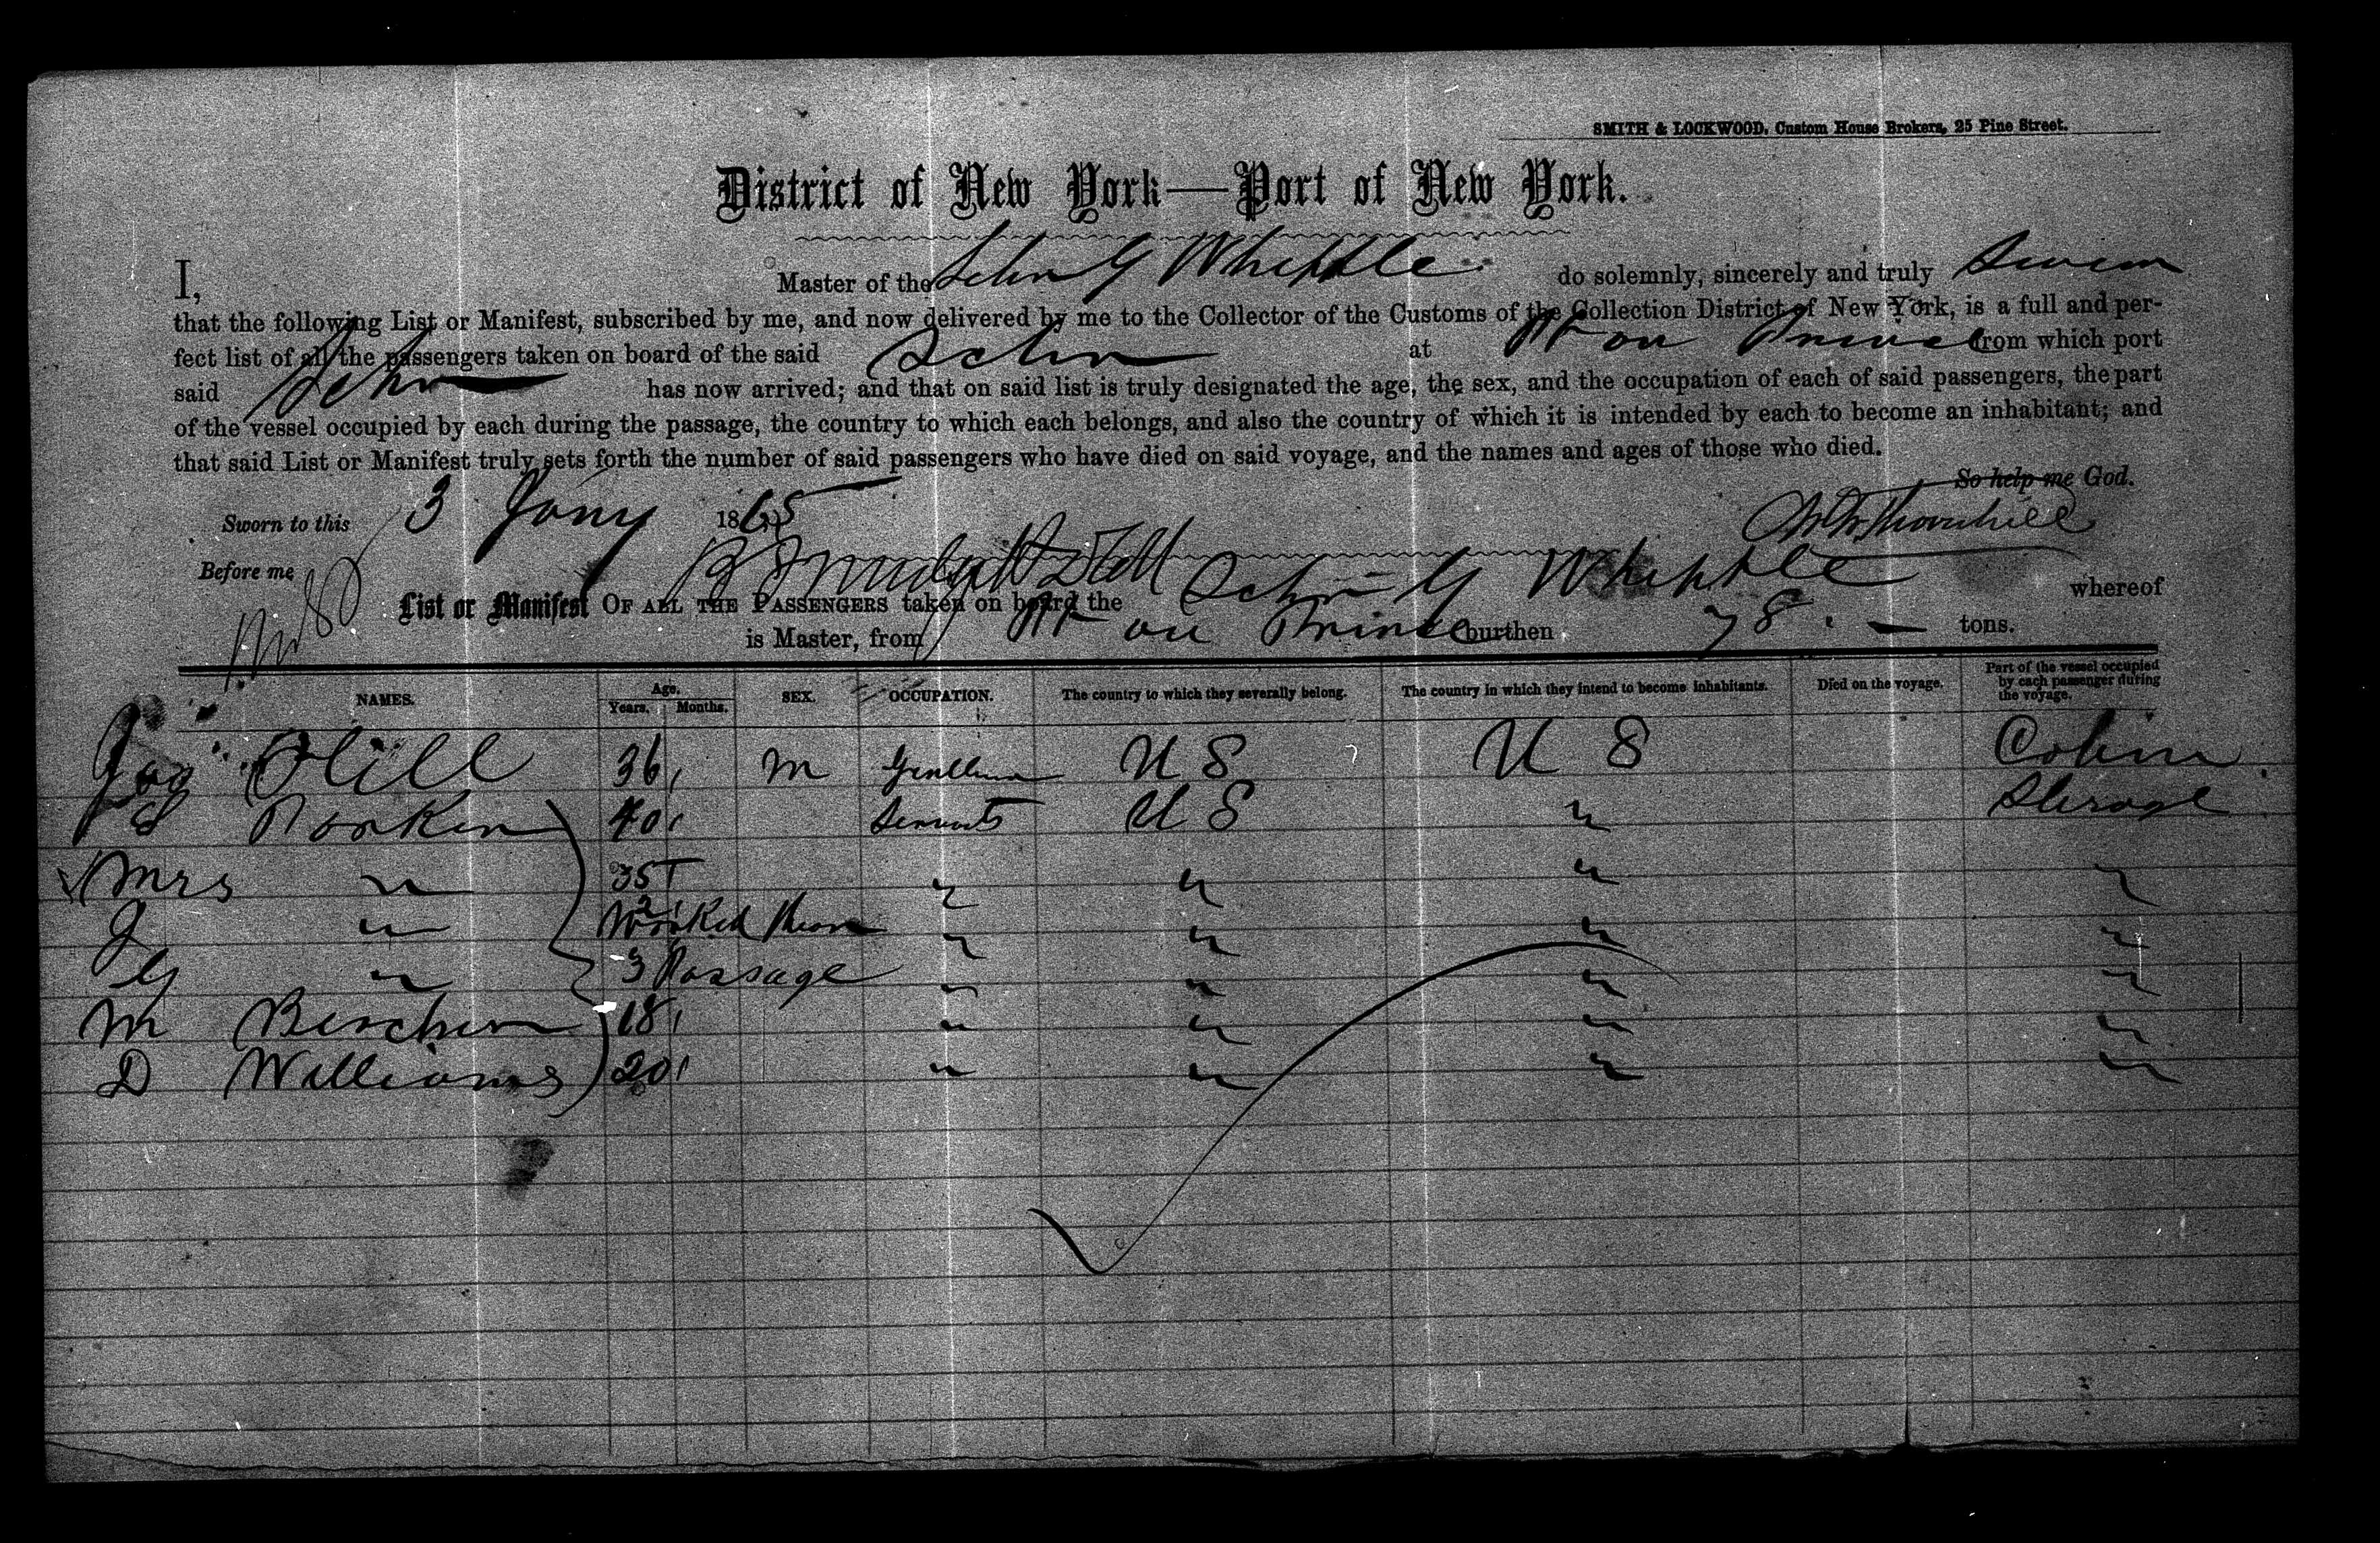 SMITH & LOCKWOOD, Custom House Brokers, 25 Pine Street.
District of New York—Port of New York.
I, Master of the Schr G Whipple do solemnly, sincerely and truly Swear
that the following List or Manifest, subscribed by me, and now delivered by me to the Collector of the Customs of the Collection District of New York, is a full and per-
fect list of all the passengers taken on board of the said Schr at Pt au Prince from which port
said Schr has now arrived; and that on said list is truly designated the age, the sex, and the occupation of each of said passengers, the part
of the vessel occupied by each during the passage, the country to which each belongs, and also the country of which it is intended by each to become an inhabitant; and
that said List or Manifest truly sets forth the number of said passengers who have died on said voyage, and the names and ages of those who died.
So help me God.
Sworn to this 3 Jany 1865
Before me
List or Manifest OF ALL THE PASSENGERS taken on board the Schr G Whipple whereof
is Master, from Pt au Prince burthen 78 . — tons.
NAMES. Age. Years. Months. SEX. OCCUPATION. The country to which they severally belong. The country in which they intend to become inhabitants. Died on the voyage. Part of the vessel occupied by each passenger during the voyage.
Hill 36 M Gentleman U S U S Cabin
40 Servants U S " Sterage
Mrs " 35 " " " "
J " 2 Worked their " " " "
G " 3 Passage " " " "
M 18 " " " "
D Williams 20 " " " "